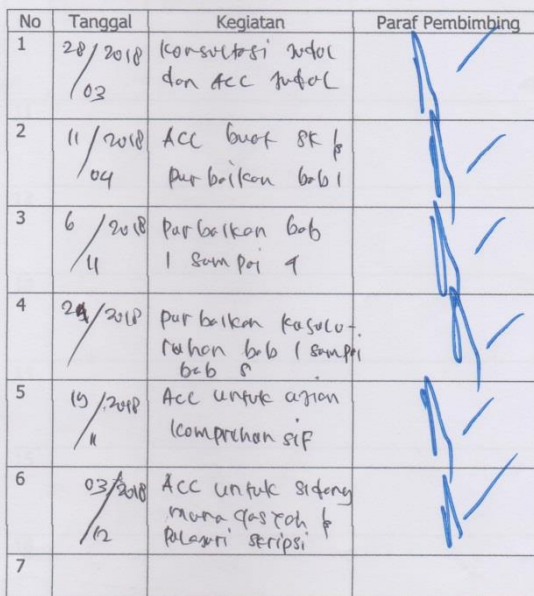 No Tanggal Kegiatan Paraf Pembimbing
1 28/2018 Konsultasi Judul
03 dan ACC Judul
2 11/2018 ACC buat SK &
04 purbaikan bab 1
3 6/2018 purbaikan bab
11 1 sampai 4
4 /2018 purbaikan kasulu-
ruhan bab 1 sampai
bab 5
5 19/2018 Acc untuk ujian
11 komprihan sif
6 03/2018 ACC untuk sidang
12 munaqasyoh &
skripsi
7